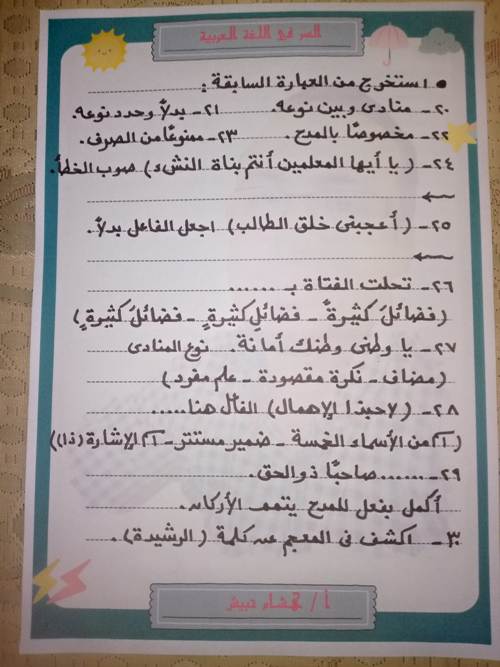 السر في اللغة العربية
● استخرج من العبارة السابقة:
٢٠- منادى وبين نوعه. ٢١- بدلاً وحدد نوعه.
٢٢- مخصوصًا بالمدح. ٢٣- ممنوعًا من الصرف.
٢٤- (يا أيها المعلمين أنتم بناة النشء) صوب الخطأ.
←
٢٥- (أعجبنى خلق الطالب) اجعل الفاعل بدلاً.
←
٢٦- تحلت الفتاة بـ ......
(فضائلَ كثيرةً - فضائلِ كثيرةٍ - فضائلَ كثيرةٍ)
٢٧- يا وطنى وطنك أمانة. نوع المنادى
(مضاف - نكرة مقصودة - علم مفرد)
٢٨- (لاحبذا الإهمال) الفاعل هنا.....
(اسم من الأسماء الخمسة - ضمير مستتر - اسم الإشارة (ذا))
٢٩- ...... صاحبًا ذو الحق.
أكمل بفعل للمدح يتمم الأركان.
٣٠- اكشف فى المعجم عن كلمة (الرشيدة).
أ / هشام دبيش